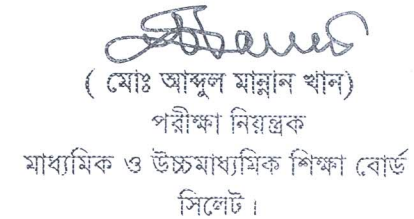 ( মোঃ আব্দুল মান্নান খান)
পরীক্ষা নিয়ন্ত্রক
মাধ্যমিক ও উচ্চমাধ্যমিক শিক্ষা বোর্ড
সিলেট।